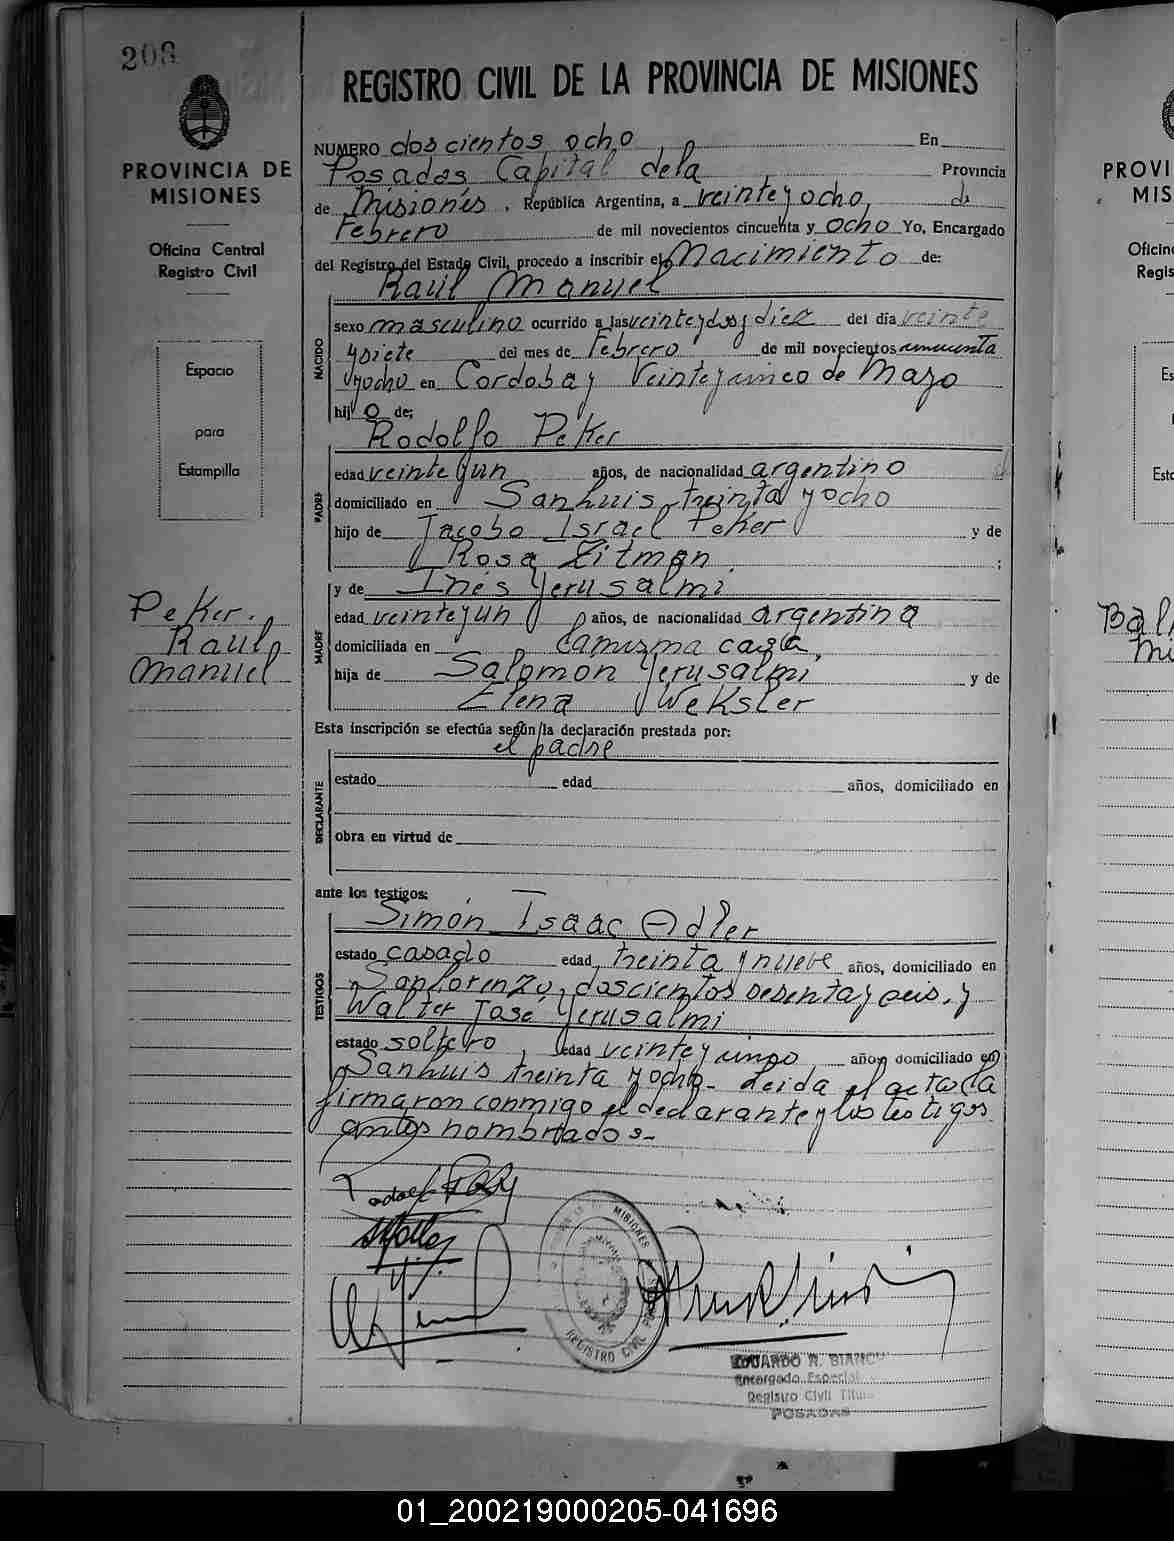 208
PROVINCIA DE
MISIONES
Oficina Central
Registro Civil
Espacio
para
Estampilla
Peker.
Raul
Manuel
REGISTRO CIVIL DE LA PROVINCIA DE MISIONES
NUMERO doscientos ocho En
Posadas Capital de la Provincia
de Misiones, República Argentina, a veinte y ocho de
Febrero de mil novecientos cincuenta y ocho Yo, Encargado
del Registro del Estado Civil, procedo a inscribir el Nacimiento de:
Raúl Manuel
NACIDO
sexo masculino ocurrido a las veinte y dos y diez del día veinte
y siete del mes de Febrero de mil novecientos cincuenta
y ocho en Cordoba y Veinte y cinco de Mayo
hij o de:
Rodolfo Peker
PADRE
edad veinte y un años, de nacionalidad argentino
domiciliado en San Luis treinta y ocho
hijo de Jacobo Israel Peker y de
Rosa Zitman ;
MADRE
y de Inés Yerusalmi
edad veinte y un años, de nacionalidad argentina
domiciliada en la misma casa,
hija de Salomón Yerusalmi y de
Elena Weksler
Esta inscripción se efectúa según la declaración prestada por:
el padre
DECLARANTE
estado edad años, domiciliado en
obra en virtud de
ante los testigos:
Simón Isaac Adler
TESTIGOS
estado casado edad treinta y nueve años, domiciliado en
San Lorenzo doscientos sesenta y seis, y
Walter José Yerusalmi
estado soltero edad veinte y cinco años domiciliado en
San Luis treinta y ocho - Leida el acta la
firmaron conmigo el declarante y los testigos
antes nombrados.-
MISIONES
REGISTRO CIVIL
EDUARDO R. BIANCO
Encargado Especial
Registro Civil
POSADAS
PROVI
MIS
Oficin
Regis
Es
Esta
Bal
Mi
01_200219000205-041696